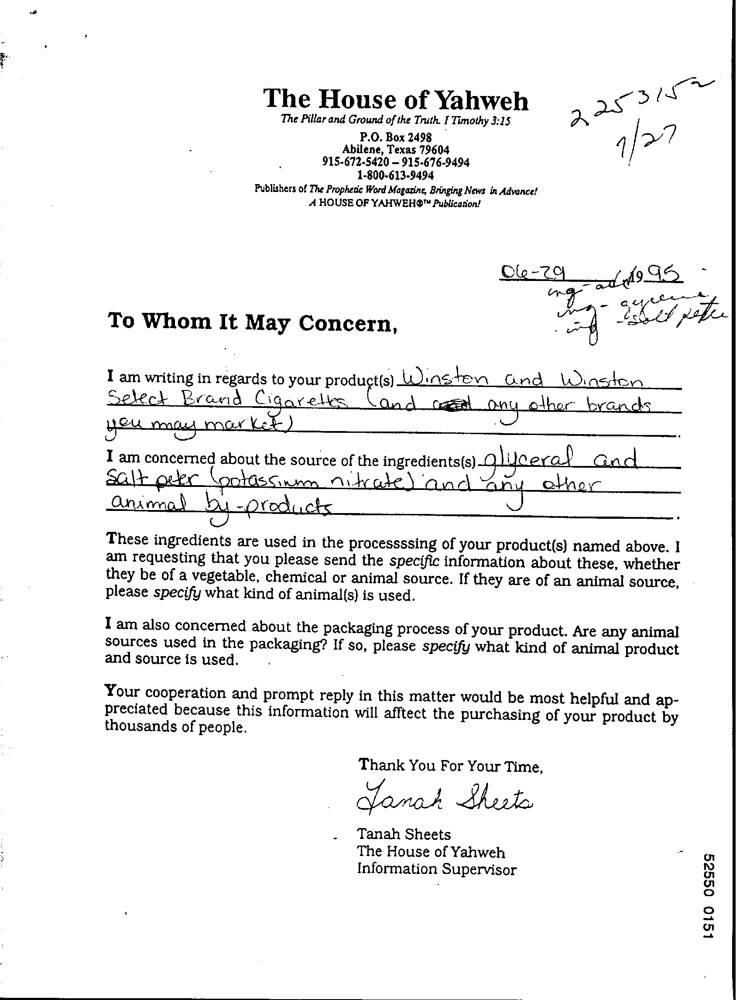 The House of Yahweh
The Pillar and Ground of the Truth. I Timothy 3:15
P.O. Box 2498
Abilene, Texas 79604
915-672-5420 – 915-676-9494
1-800-613-9494
Publishers of The Prophetic Word Magazine, Bringing News in Advance!
A HOUSE OF YAHWEH®™ Publication!
2253152
7/27
06-29 1995
ing-
ing-
ing - salt peter
To Whom It May Concern,
I am writing in regards to your product(s) Winston and Winston
Select Brand Cigarettes (and any other brands
you may market)
I am concerned about the source of the ingredients(s) glyceral and
Salt peter (potassium nitrate) and any other
animal by-products
These ingredients are used in the processssing of your product(s) named above. I
am requesting that you please send the specific information about these, whether
they be of a vegetable, chemical or animal source. If they are of an animal source,
please specify what kind of animal(s) is used.
I am also concerned about the packaging process of your product. Are any animal
sources used in the packaging? If so, please specify what kind of animal product
and source is used.
Your cooperation and prompt reply in this matter would be most helpful and ap-
preciated because this information will afftect the purchasing of your product by
thousands of people.
Thank You For Your Time,
Tanah Sheets
Tanah Sheets
The House of Yahweh
Information Supervisor
52550 0151